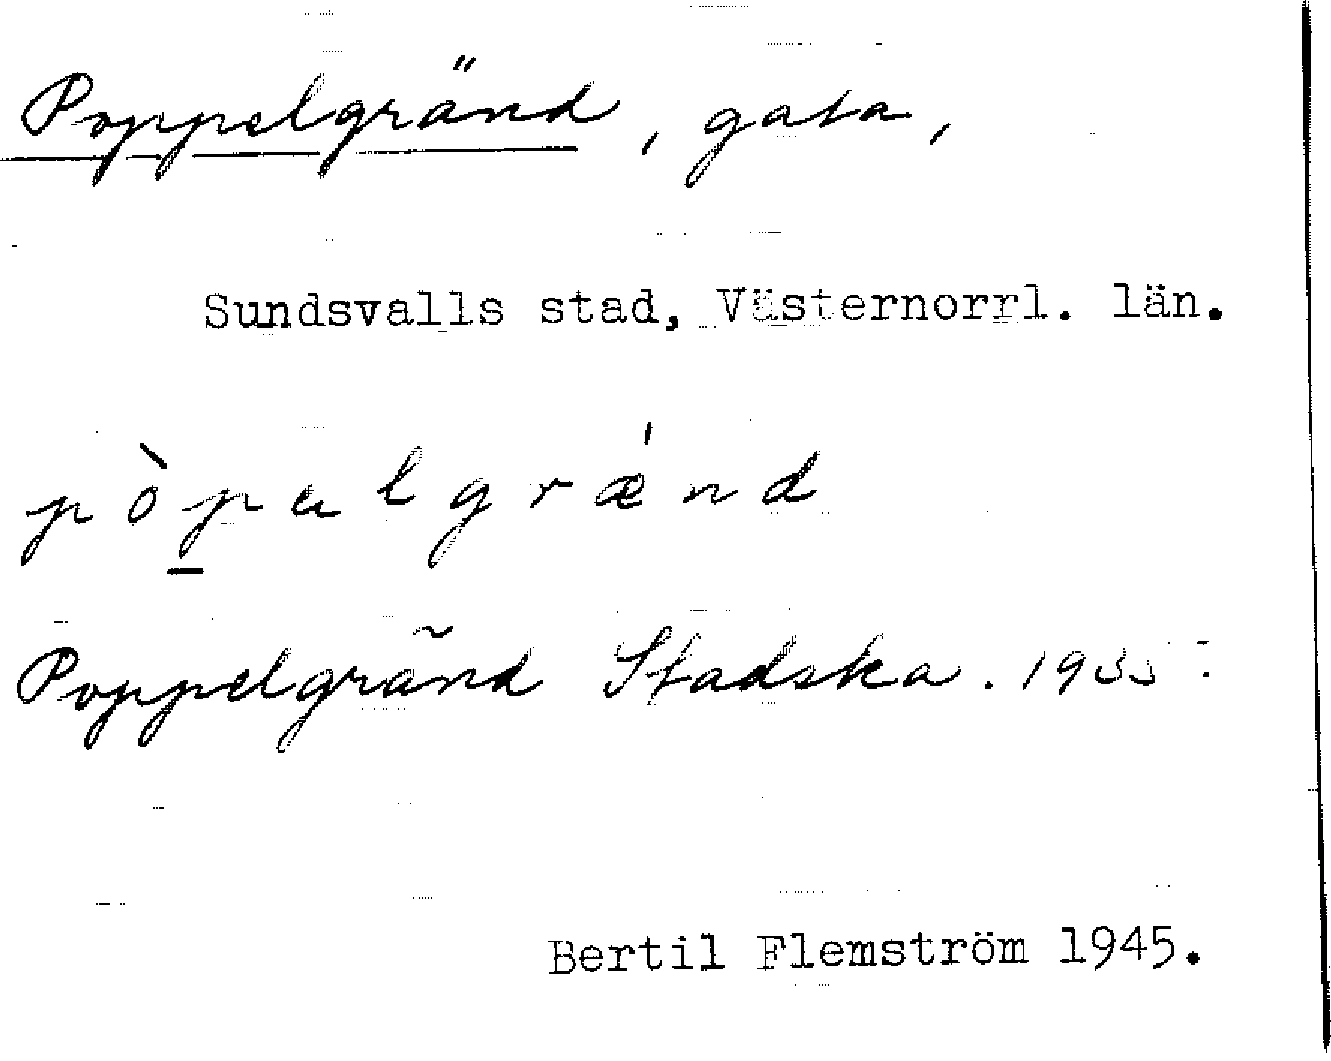 Poppelgränd, gata,
Sundsvalls stad, Västernorrl. län.
pòpalgrǽnd
Poppelgränd Stadska. 1935.
Bertil Flemström 1945.